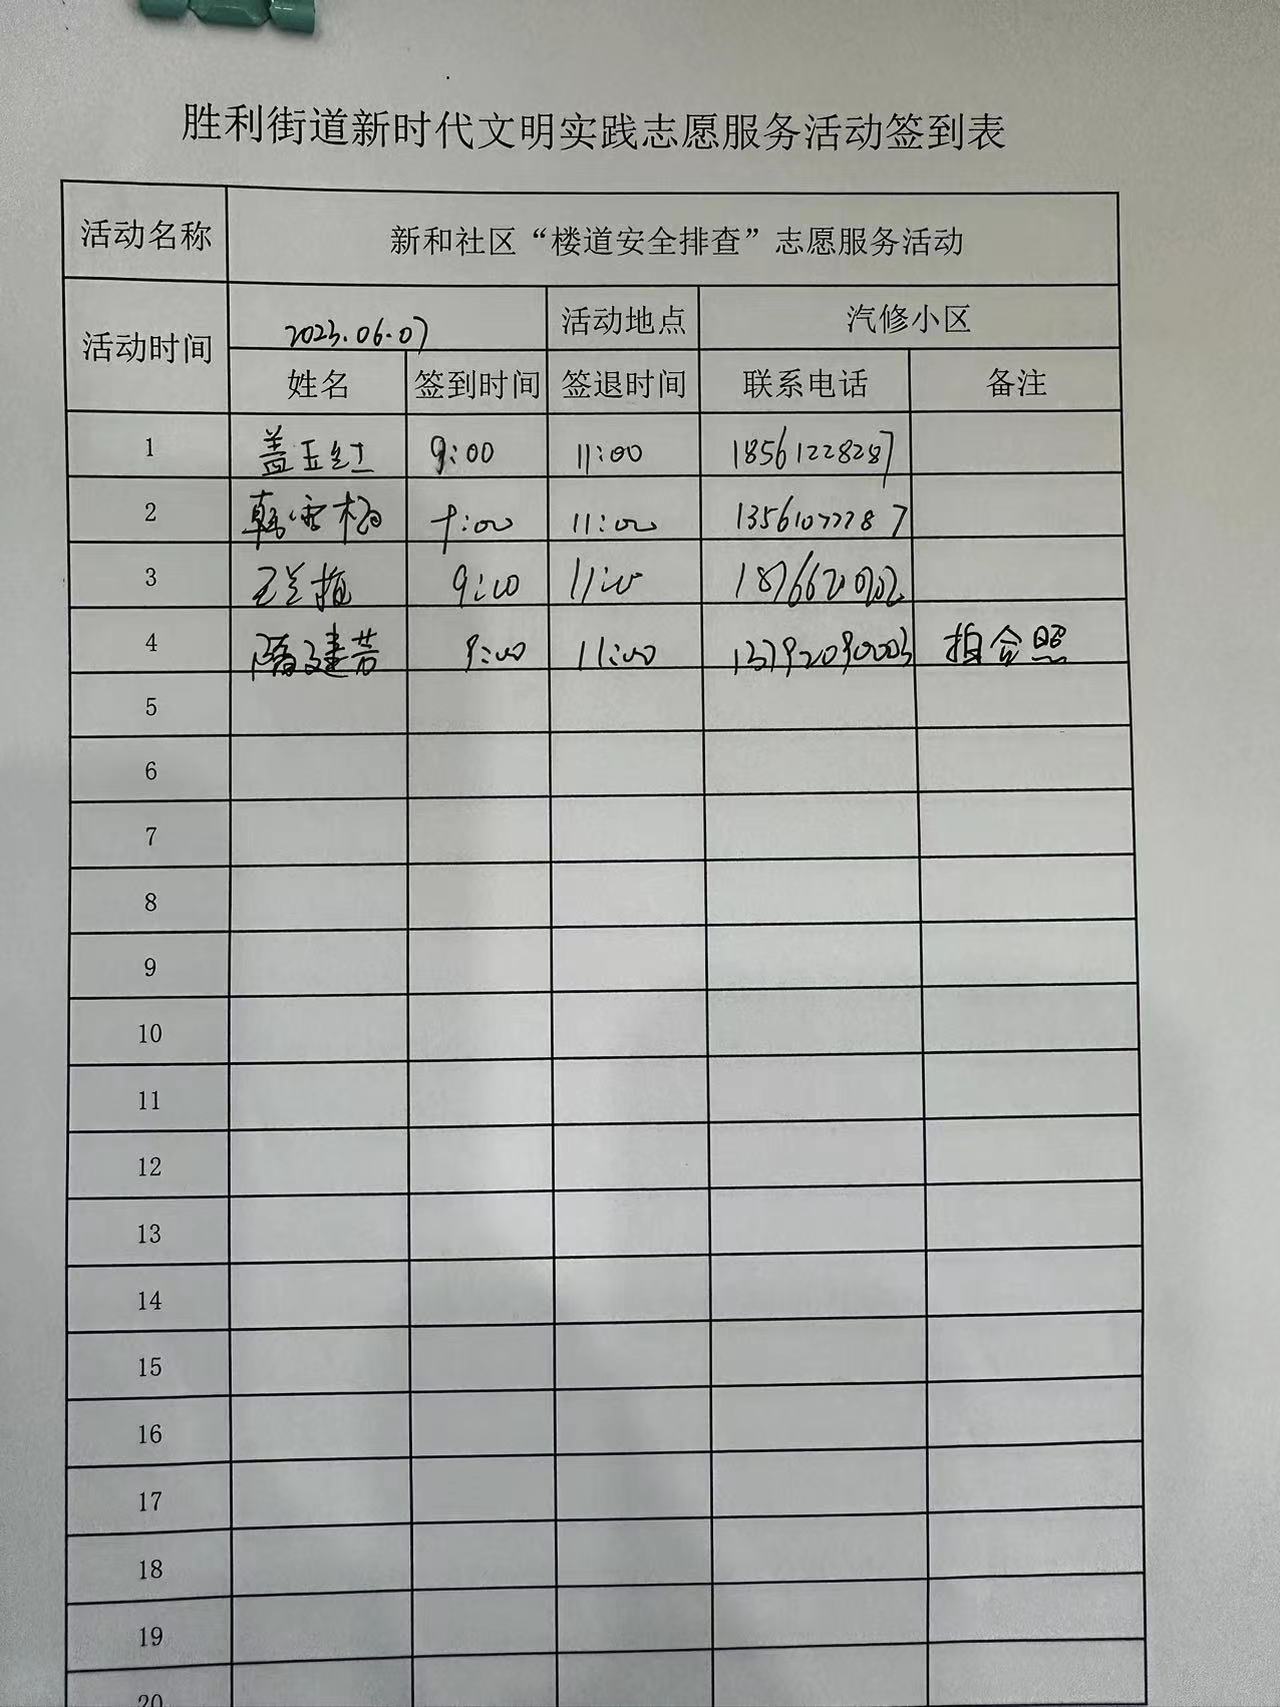 胜利街道新时代文明实践志愿服务活动签到表
活动名称 新和社区“楼道安全排查”志愿服务活动
活动时间 2023.06.07 活动地点 汽修小区
姓名 签到时间 签退时间 联系电话 备注
1 盖玉红 9:00 11:00 18561228287
2 韩雪梅 9:00 11:00 13561077787
3 王兰植 9:00 11:00
4 隋建芳 9:00 11:00 13792090003 拍合照
5
6
7
8
9
10
11
12
13
14
15
16
17
18
19
20